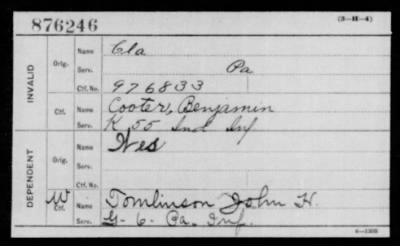 876246 (3-H-4)
INVALID
Orig. Name Cla
Serv. Pa
Ctf. No. 976833
Ctf. Name Cooter, Benjamin
Serv. K 55 Ind Inf
DEPENDENT
Orig. Name Wes
Serv.
Ctf. No.
W Ctf. Name Tomlinson John H.
Serv. G-6-Pa. Inf.